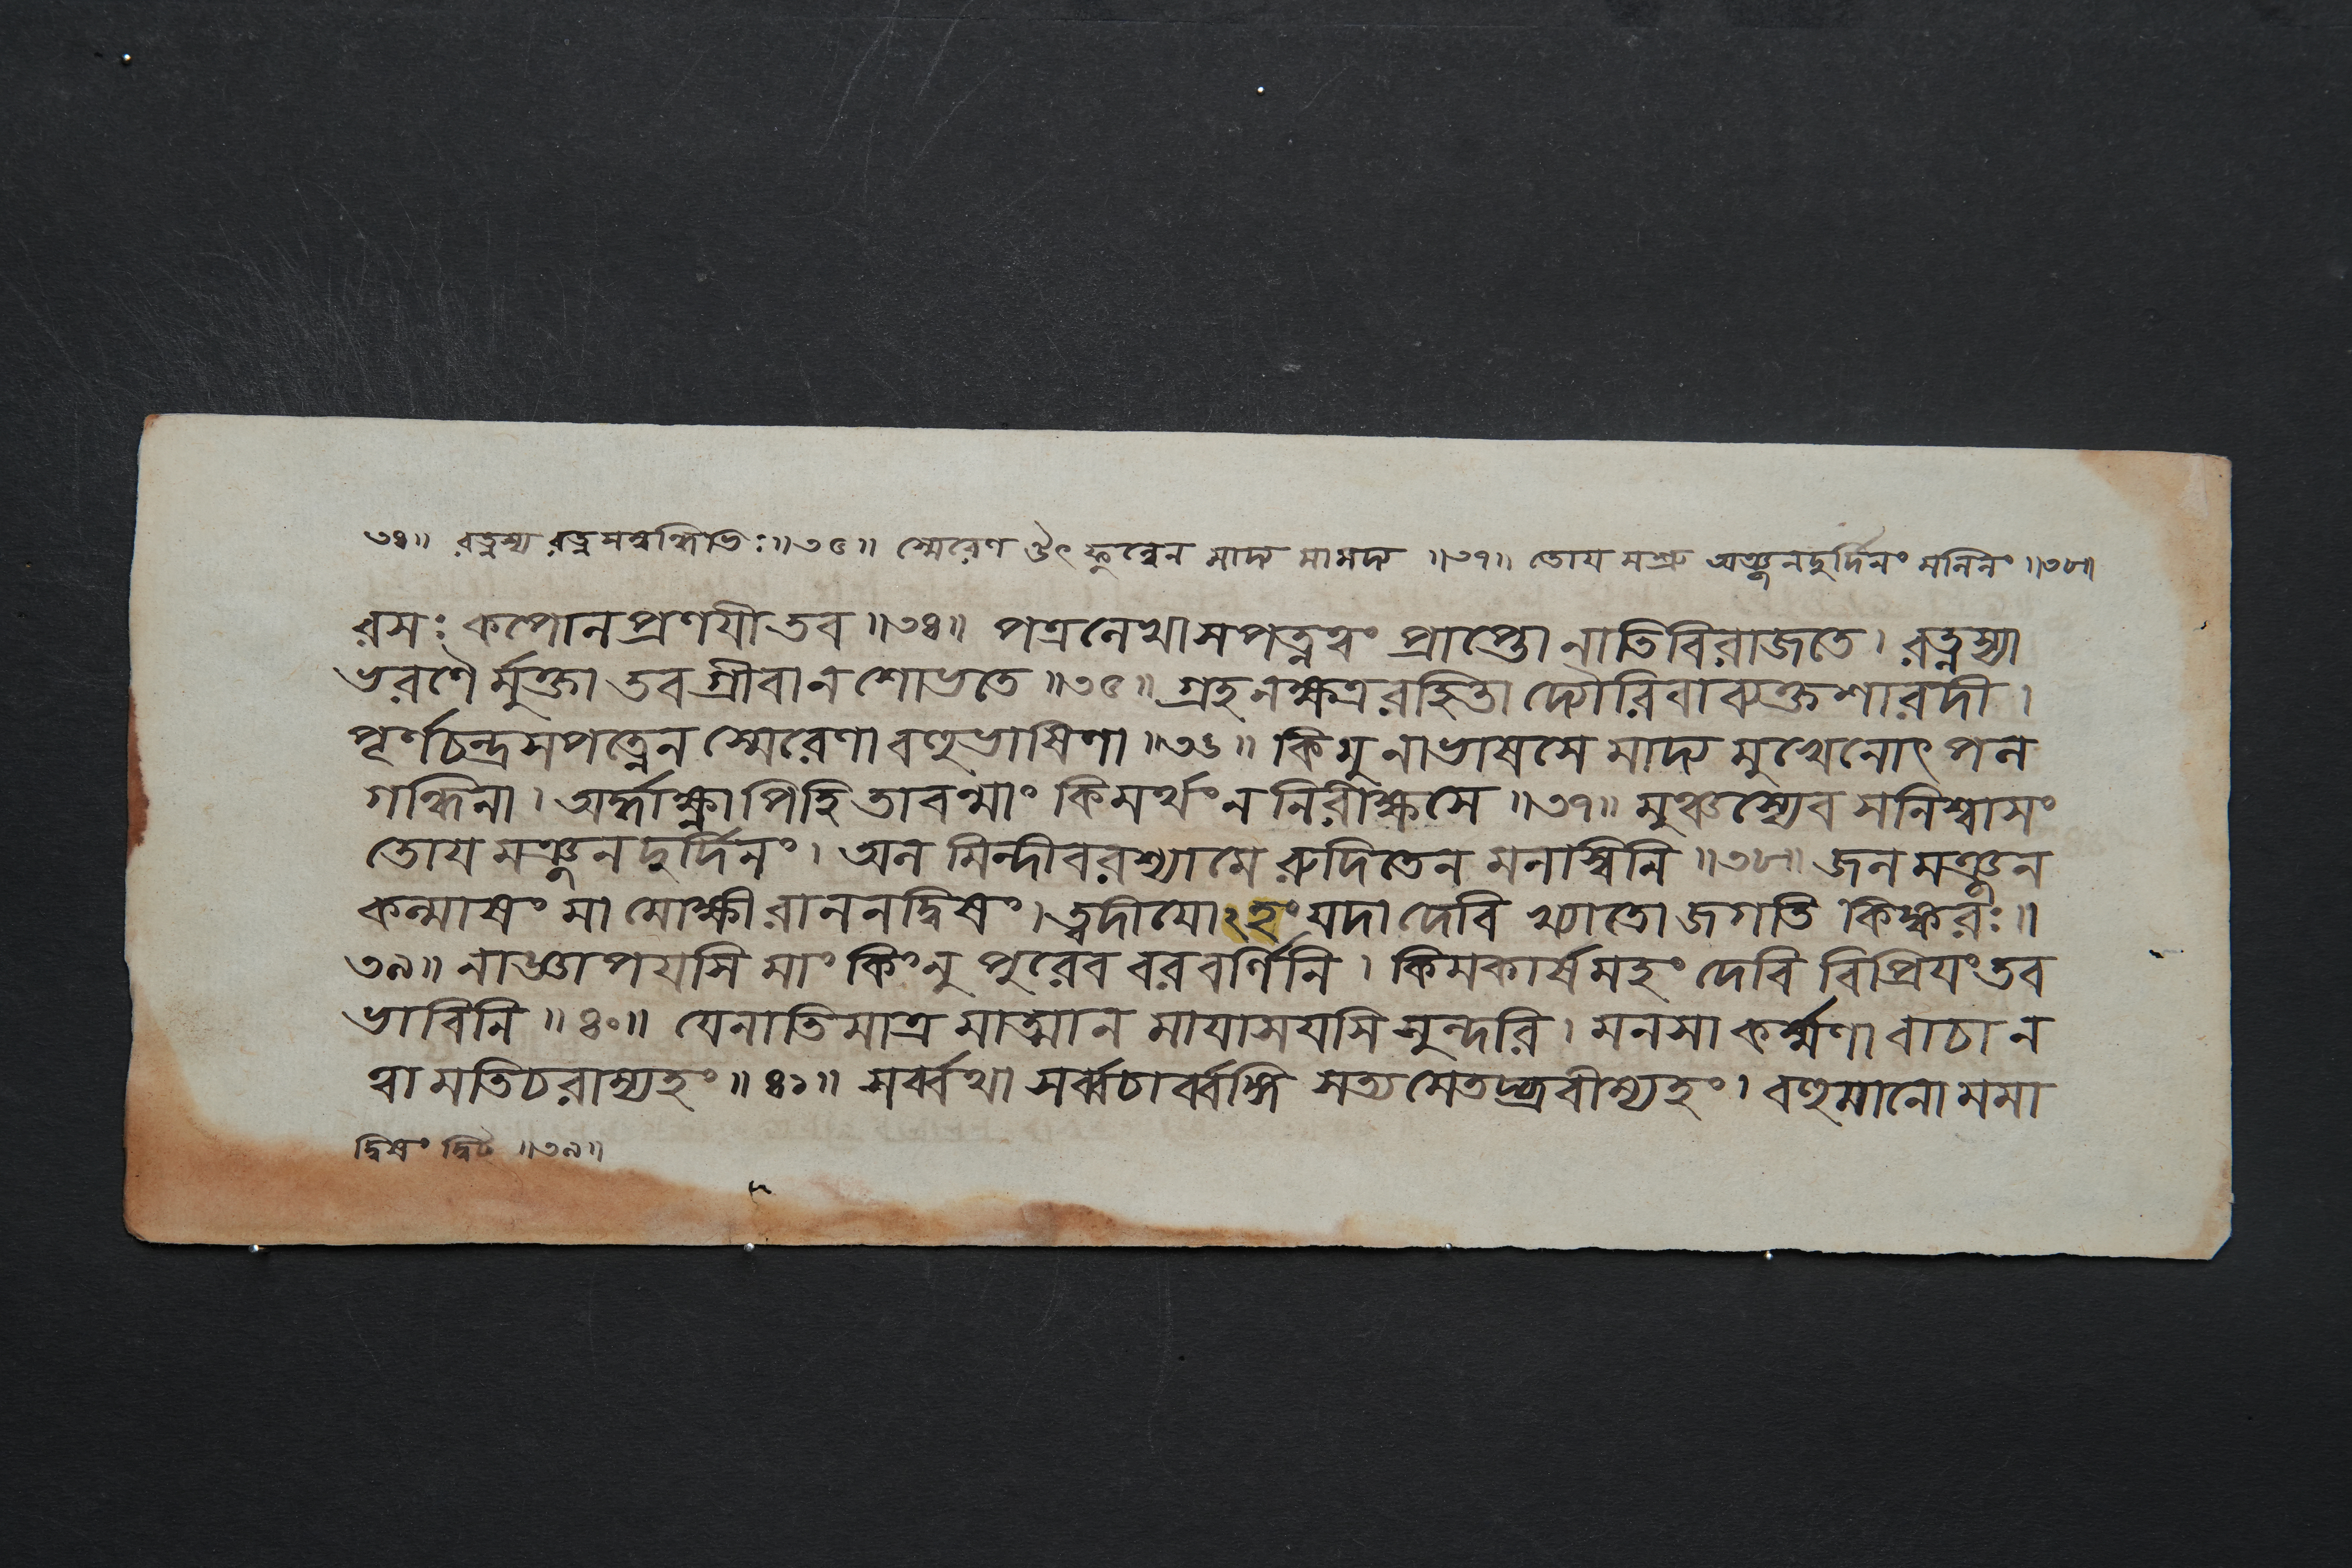 ৩৪॥ রত্নস্য রত্নসম্বন্ধিভিঃ॥৩৫॥ স্মেরেণ ঔৎফুল্লেন মাদ্য মামদ্য ॥৩৭॥ তোয মশ্রু অঞ্জনদুর্দিনং মলিনং ॥৩৮॥
রসঃ কপোলপ্রণযী তব ॥৩৪॥ পত্রলেখাসপত্নত্বং প্রাপ্তো নাতিবিরাজতে। রত্নস্যা
ভরণৈ র্মুক্তা তব গ্রীবা ন শোভতে ॥৩৫॥ গ্রহনক্ষত্ররহিতা দ্যৌরিবাব্যক্তশারদী।
পূর্ণচন্দ্রসপত্নেন স্মেরেণা বহুভাষিণা ॥৩৬॥ কিমু নাভাষসে মাদ্য মুখেনোৎপল
গন্ধিনা। অর্দ্ধাক্ষ্ণাপিহি তাবন্মাং কিমর্থং ন নিরীক্ষসে ॥৩৭॥ মুঞ্চস্যেব সনিশ্বাসং
তোয মঞ্জনদুর্দিনং। অল মিন্দীবরশ্যামে রুদিতেন মনস্বিনি ॥৩৮॥ জল মঞ্জন
কল্মাষং মা মোক্ষী রাননদ্বিষং। ত্বদীযোঽহং যদা দেবি খ্যাতো জগতি কিঙ্করঃ॥
৩৯॥ নাজ্ঞাপযসি মাং কিংনু পুরেব বরবর্ণিনি। কিমকার্ষমহং দেবি বিপ্রিযং তব
ভাবিনি ॥৪০॥ যেনাতিমাত্র মাত্মান মাযাসযসি সুন্দরি। মনসা কর্ম্মণা বাচা ন
ত্বা মতিচরাম্যহং ॥৪১॥ সর্ব্বথা সর্ব্বচার্ব্বঙ্গি সত্য মেতদ্ব্রবীম্যহং। বহুমানো মমা
দ্বিষং দ্বিট ॥৩৯॥